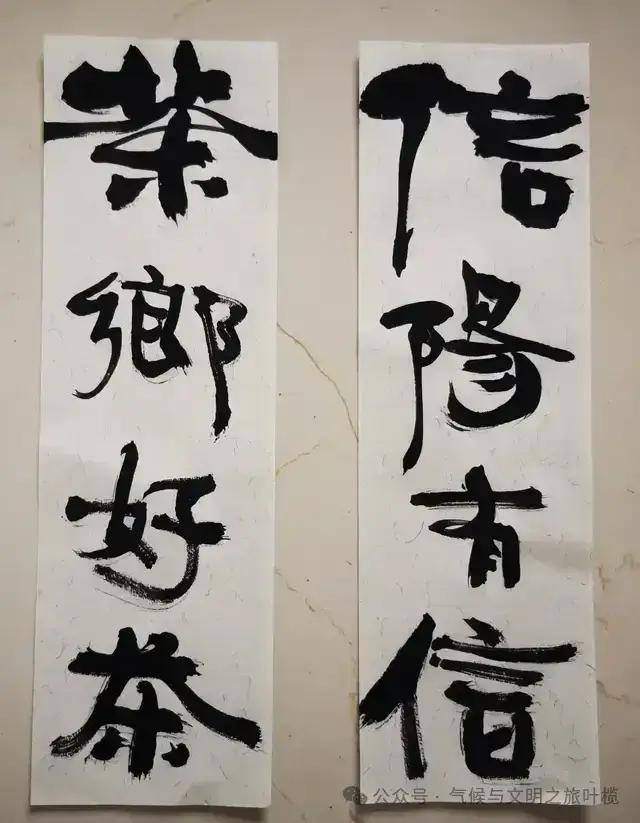 信陽有信
茶鄉好茶
公众号·气候与文明之旅叶榄